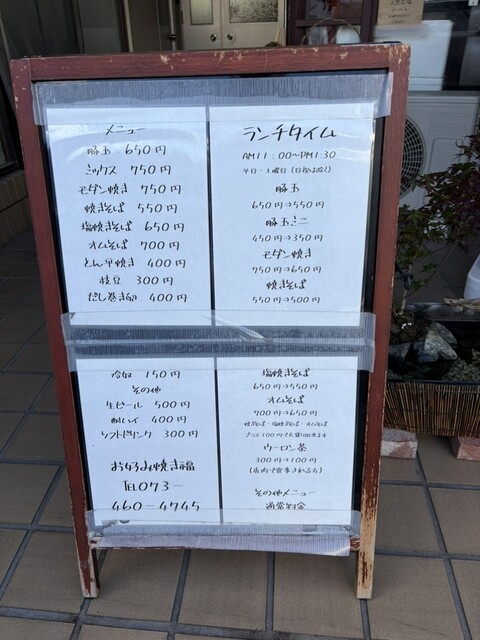 メニュー
豚玉 650円
ミックス 750円
モダン焼き 750円
焼きそば 550円
塩焼きそば 650円
オムそば 700円
とん平焼き 400円
枝豆 300円
だし巻き卵 400円
冷奴 150円
その他
生ビール 500円
酎ハイ 400円
ソフトドリンク 300円
お好み焼き福
TEL073-
460-4745
ランチタイム
AM11:00〜PM1:30
平日・土曜日(日祝は除く)
豚玉
650円→550円
豚玉ミニ
450円→350円
モダン焼き
750円→650円
焼きそば
550円→500円
塩焼きそば
650円→550円
オムそば
700円→650円
焼きそば・塩焼きそば・オムそば
プラス100円で大盛り出来ます
ウーロン茶
300円→100円
(店内で食事される方)
その他メニュー
通常料金